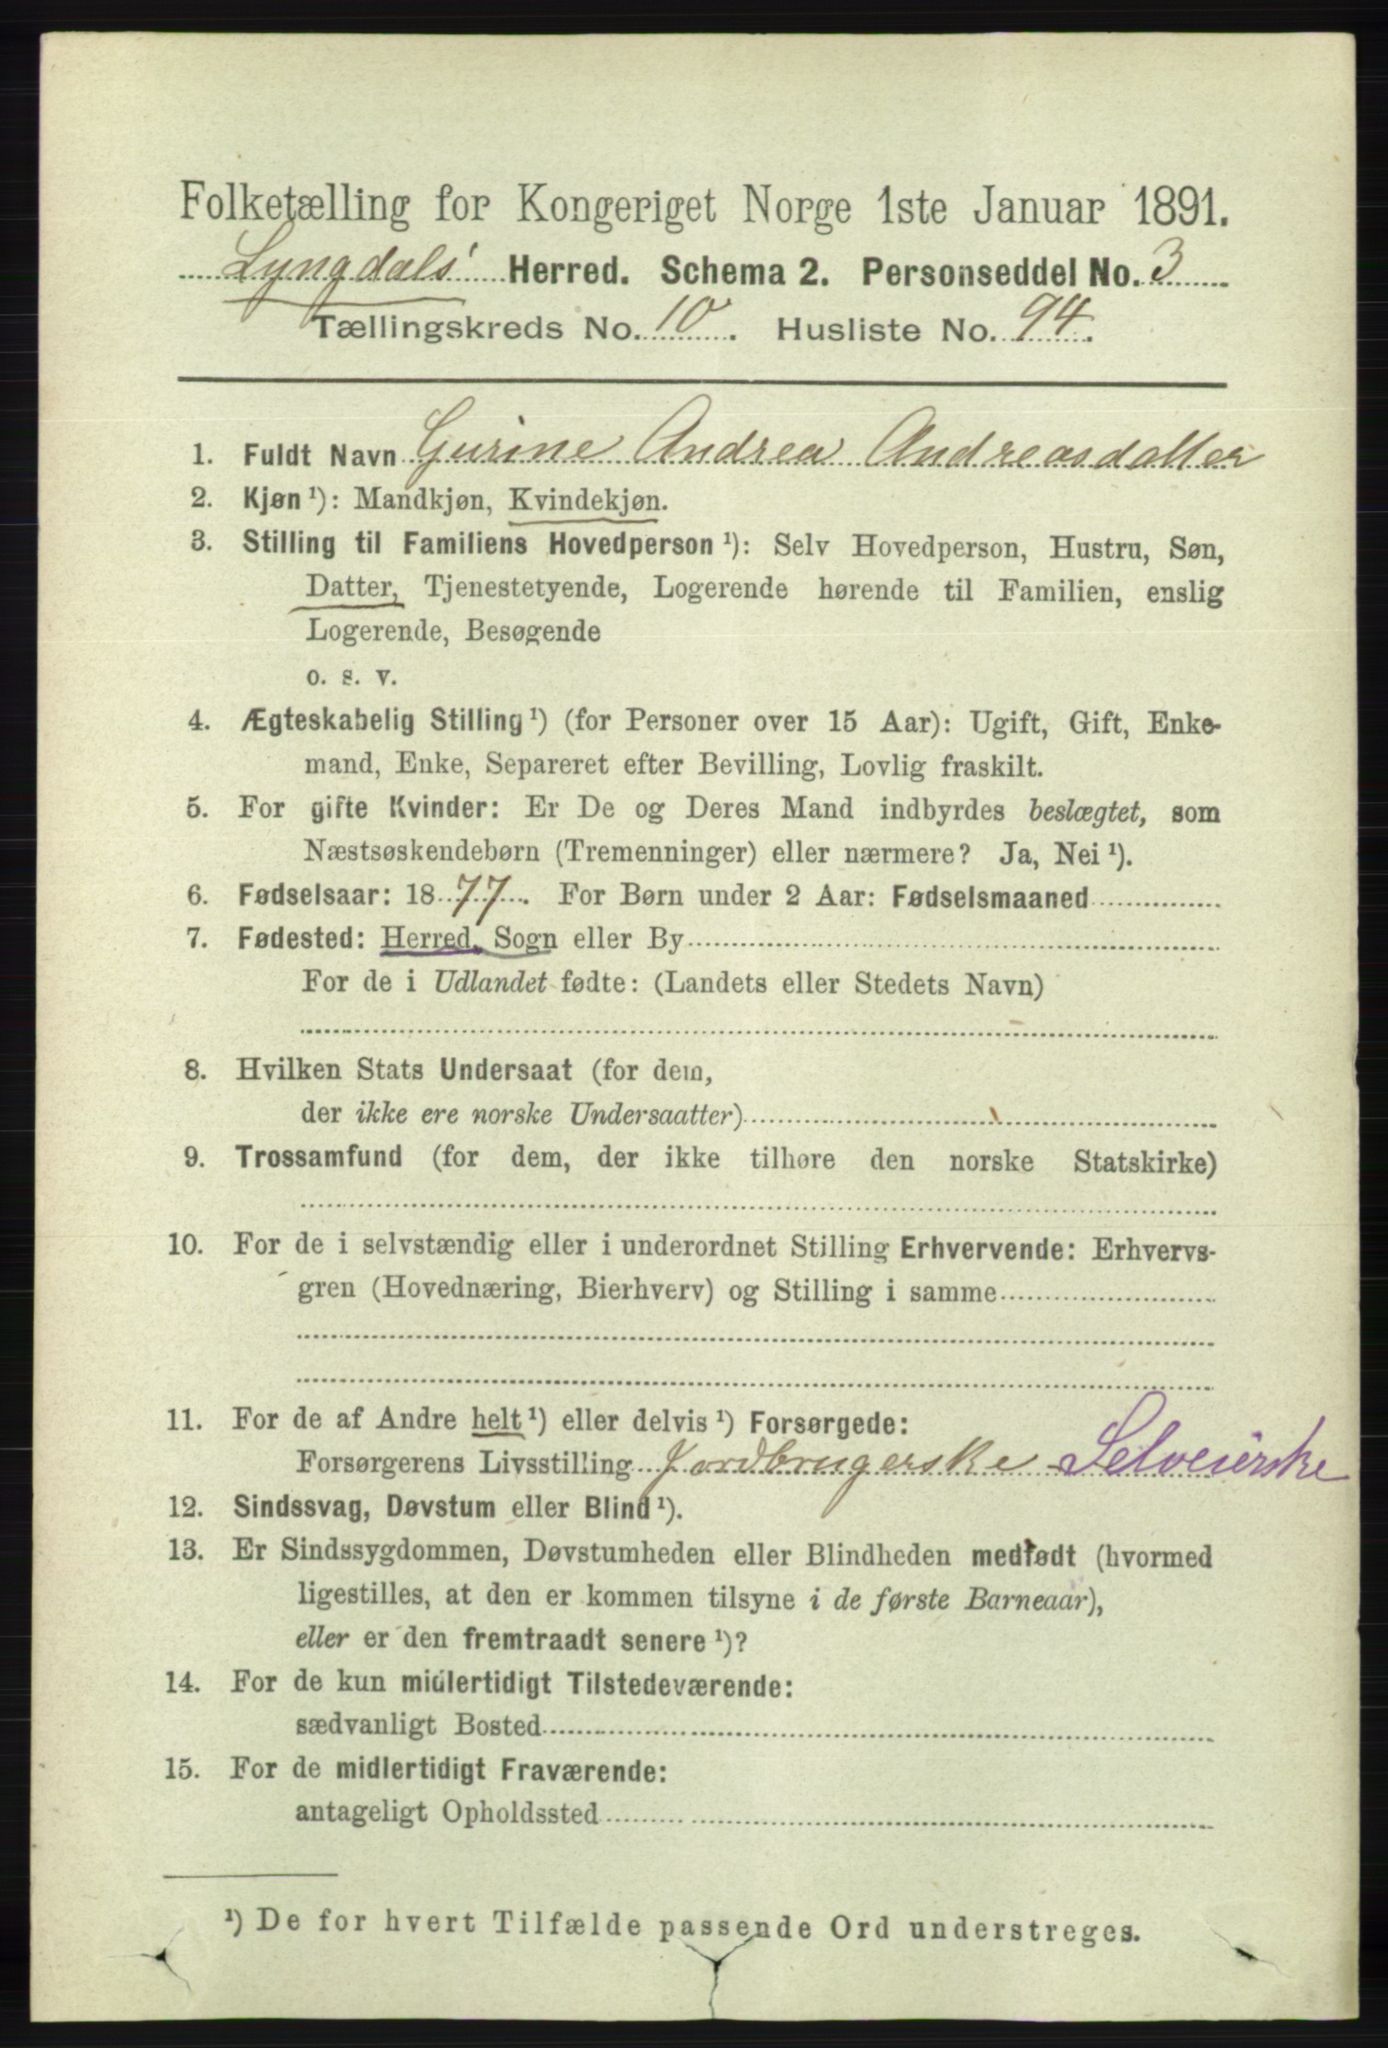 Folketælling for Kongeriget Norge 1ste Januar 1891.
Lyngdals' Herred. Schema 2. Personseddel No. 3
Tællingskreds No. 10. Husliste No. 94.
1. Fuldt Navn Gurine Andrea Andreasdatter
2. Kjøn ¹): Mandkjøn, Kvindekjøn.
3. Stilling til Familiens Hovedperson ¹): Selv Hovedperson, Hustru, Søn,
Datter, Tjenestetyende, Logerende hørende til Familien, enslig
Logerende, Besøgende
o. s. v.
4. Ægteskabelig Stilling ¹) (for Personer over 15 Aar): Ugift, Gift, Enke-
mand, Enke, Separeret efter Bevilling, Lovlig fraskilt.
5. For gifte Kvinder: Er De og Deres Mand indbyrdes beslægtet, som
Næstsøskendebørn (Tremenninger) eller nærmere? Ja, Nei ¹).
6. Fødselsaar: 1877. For Børn under 2 Aar: Fødselsmaaned
7. Fødested: Herred, Sogn eller By
For de i Udlandet fødte: (Landets eller Stedets Navn)
8. Hvilken Stats Undersaat (for dem,
der ikke ere norske Undersaatter)
9. Trossamfund (for dem, der ikke tilhøre den norske Statskirke)
10. For de i selvstændig eller i underordnet Stilling Erhvervende: Erhvervs-
gren (Hovednæring, Bierhverv) og Stilling i samme
11. For de af Andre helt ¹) eller delvis ¹) Forsørgede:
Forsørgerens Livsstilling Jordbrugerske Selveierske
12. Sindssvag, Døvstum eller Blind ¹).
13. Er Sindssygdommen, Døvstumheden eller Blindheden medfødt (hvormed
ligestilles, at den er kommen tilsyne i de første Barneaar),
eller er den fremtraadt senere ¹)?
14. For de kun midlertidigt Tilstedeværende:
sædvanligt Bosted
15. For de midlertidigt Fraværende:
antageligt Opholdssted
¹) De for hvert Tilfælde passende Ord understreges.